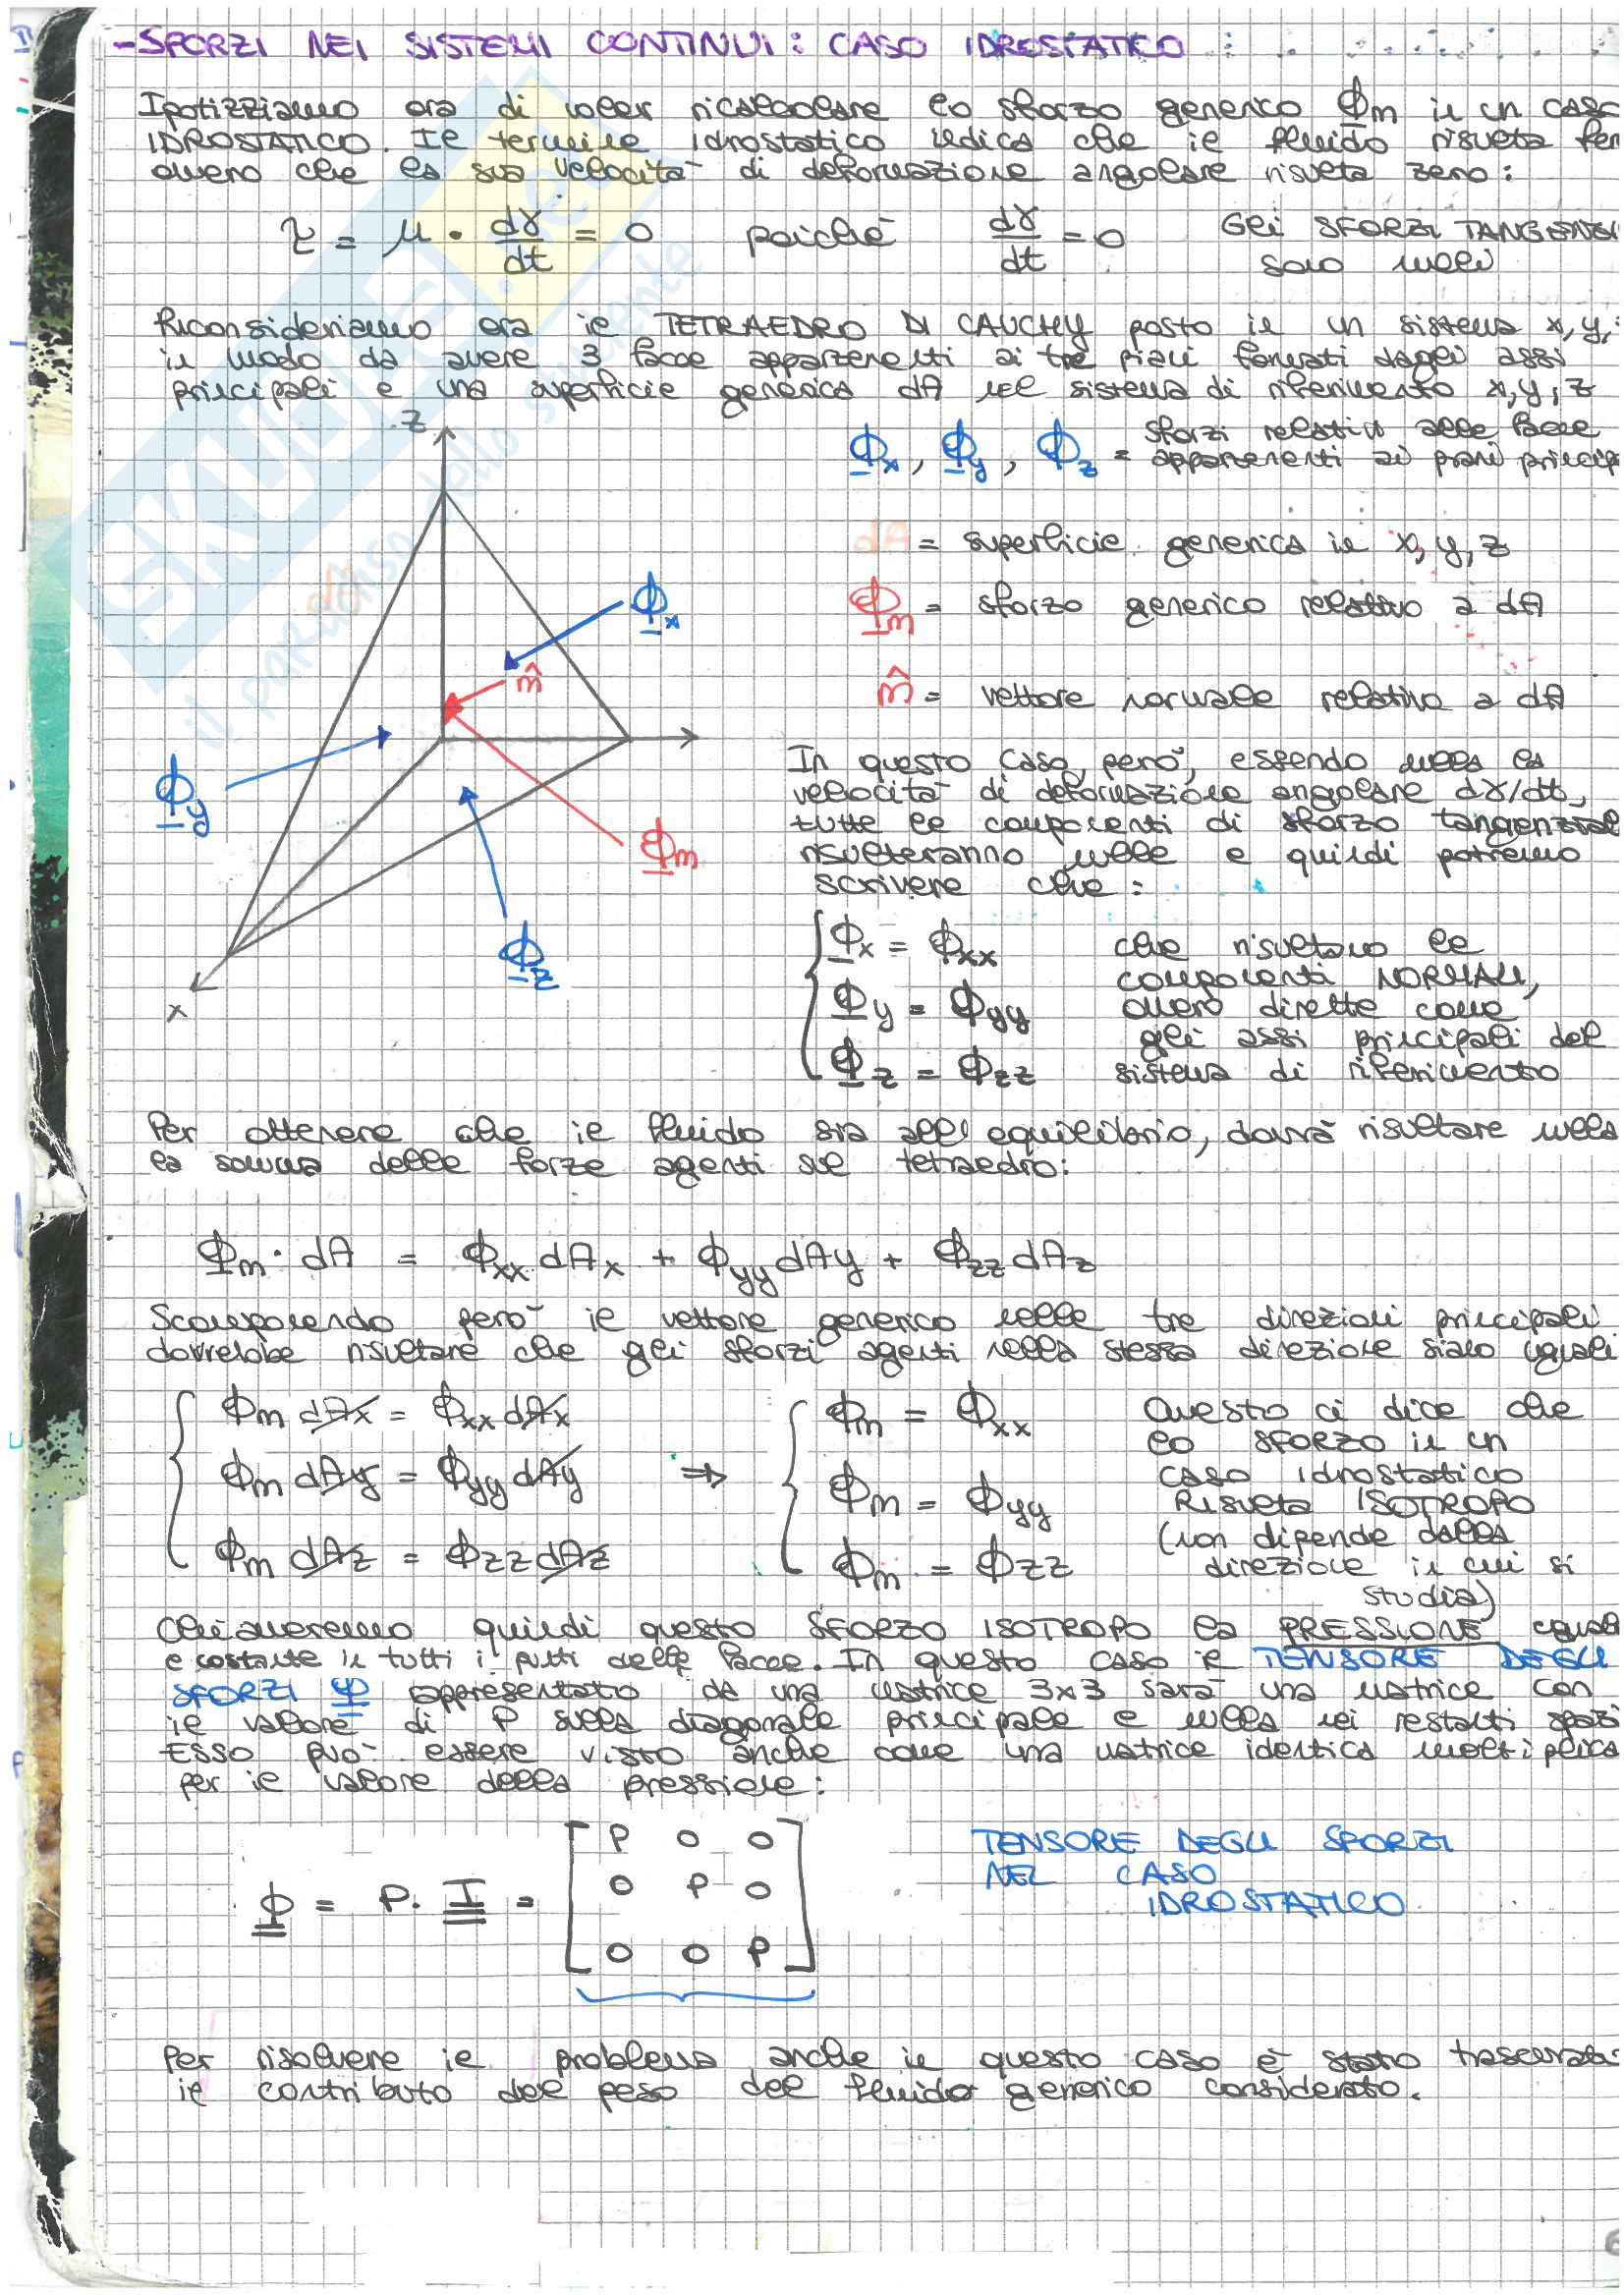 -SFORZI NEI SISTEMI CONTINUI: CASO IDROSTATICO
Ipotizziamo ora di voler ricalcolare lo sforzo generico Φn in un caso
IDROSTATICO. Il termine idrostatico indica che il fluido risulta fer
ovvero che la sua velocità di deformazione angolare risulta zero:
τ = μ · dγ/dt = 0 poiché dγ/dt = 0 Gli SFORZI TANGENZI
sono nulli
Riconsideriamo ora il TETRAEDRO DI CAUCHY posto in un sistema x,y,
in modo da avere 3 facce appartenenti ai tre piani formati dagli assi
principali e una superficie generica dA nel sistema di riferimento x,y,z
z
Φx, Φy, Φz = sforzi relativi alle facce
appartenenti ai piani princip
dA = superficie generica in x,y,z
dA
Φx
Φn = sforzo generico relativo a dA
n
n = vettore normale relativo a dA
Φy
Φn
Φz
x
In questo caso, però, essendo nulla la
velocità di deformazione angolare dγ/dt,
tutte le componenti di sforzo tangenzial
risulteranno nulle e quindi potremo
scrivere che:
Φx = Φxx che risultano le
componenti NORMALI,
Φy = Φyy ovvero dirette come
gli assi principali del
Φz = Φzz sistema di riferimento
Per ottenere che il fluido sia all'equilibrio, dovrà risultare nulla
la somma delle forze agenti sul tetraedro:
Φn · dA = Φxx dAx + Φyy dAy + Φzz dAz
Scomponendo però il vettore generico nelle tre direzioni principali
dovrebbe risultare che gli sforzi agenti nella stessa direzione siano uguali
Φn dAx = Φxx dAx
Φn dAy = Φyy dAy
Φn dAz = Φzz dAz
⇒
Φn = Φxx
Φn = Φyy
Φn = Φzz
Questo ci dice che
lo SFORZO in un
caso idrostatico
Risulta ISOTROPO
(non dipende dalla
direzione in cui si
studia)
Chiameremo quindi questo SFORZO ISOTROPO la PRESSIONE uguale
e costante in tutti i punti delle facce. In questo caso il TENSORE DEGLI
SFORZI Φ rappresentato da una matrice 3x3 sarà una matrice con
il valore di P sulla diagonale principale e nulla nei restanti spazi
Esso può essere visto anche come una matrice identica moltiplica
per il valore della pressione:
Φ = P · I =
P 0 0
0 P 0
0 0 P
TENSORE DEGLI SFORZI
NEL CASO
IDROSTATICO
Per risolvere il problema anche in questo caso è stato trascurato
il contributo del peso del fluido generico considerato.
SKUOLA.net
il paradiso dello studente
6